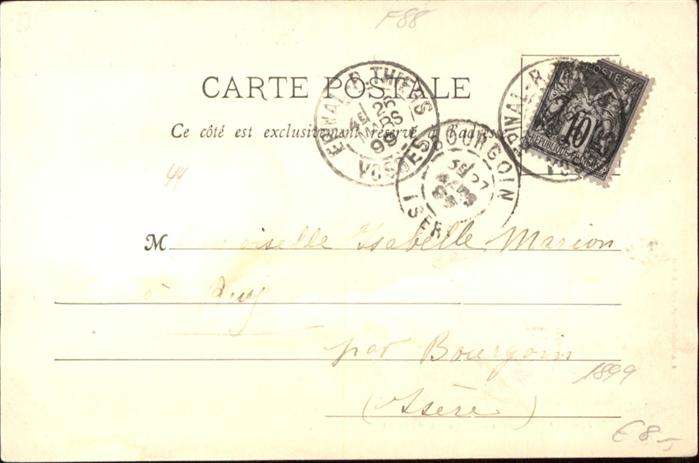 F88
CARTE POSTALE
Ce côté est exclusivement réservé à l'adresse
EPINAL-R. THIERS
26
MARS
99
VOSGES
BOURGOIN
27
MARS
ISERE
POSTES
10
44
M oiselle Isabelle Marion
à
par Bourgoin
(Isère)
1899
€ 8-